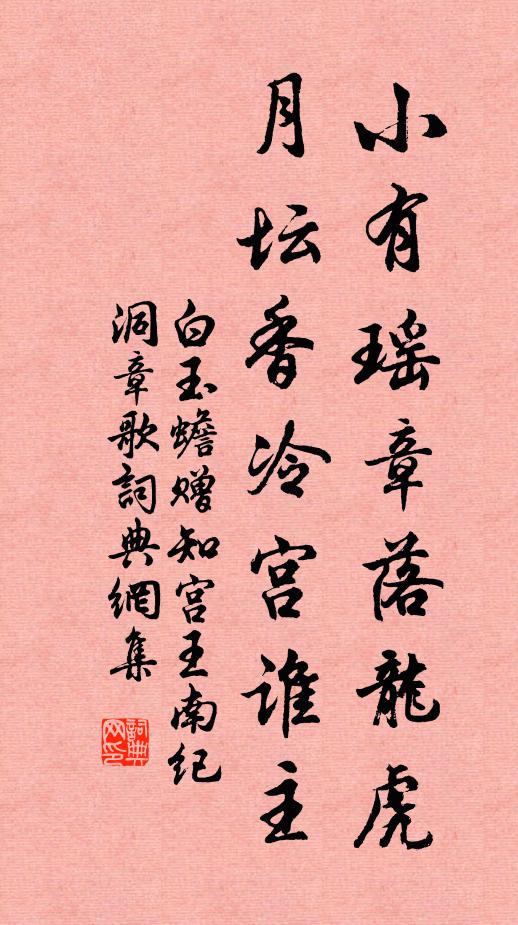 小有瑶章落龍虎
月坛香冷宫谁主
白玉蟾赠知宫王南纪
洞章歌詞典網集
詞典网印